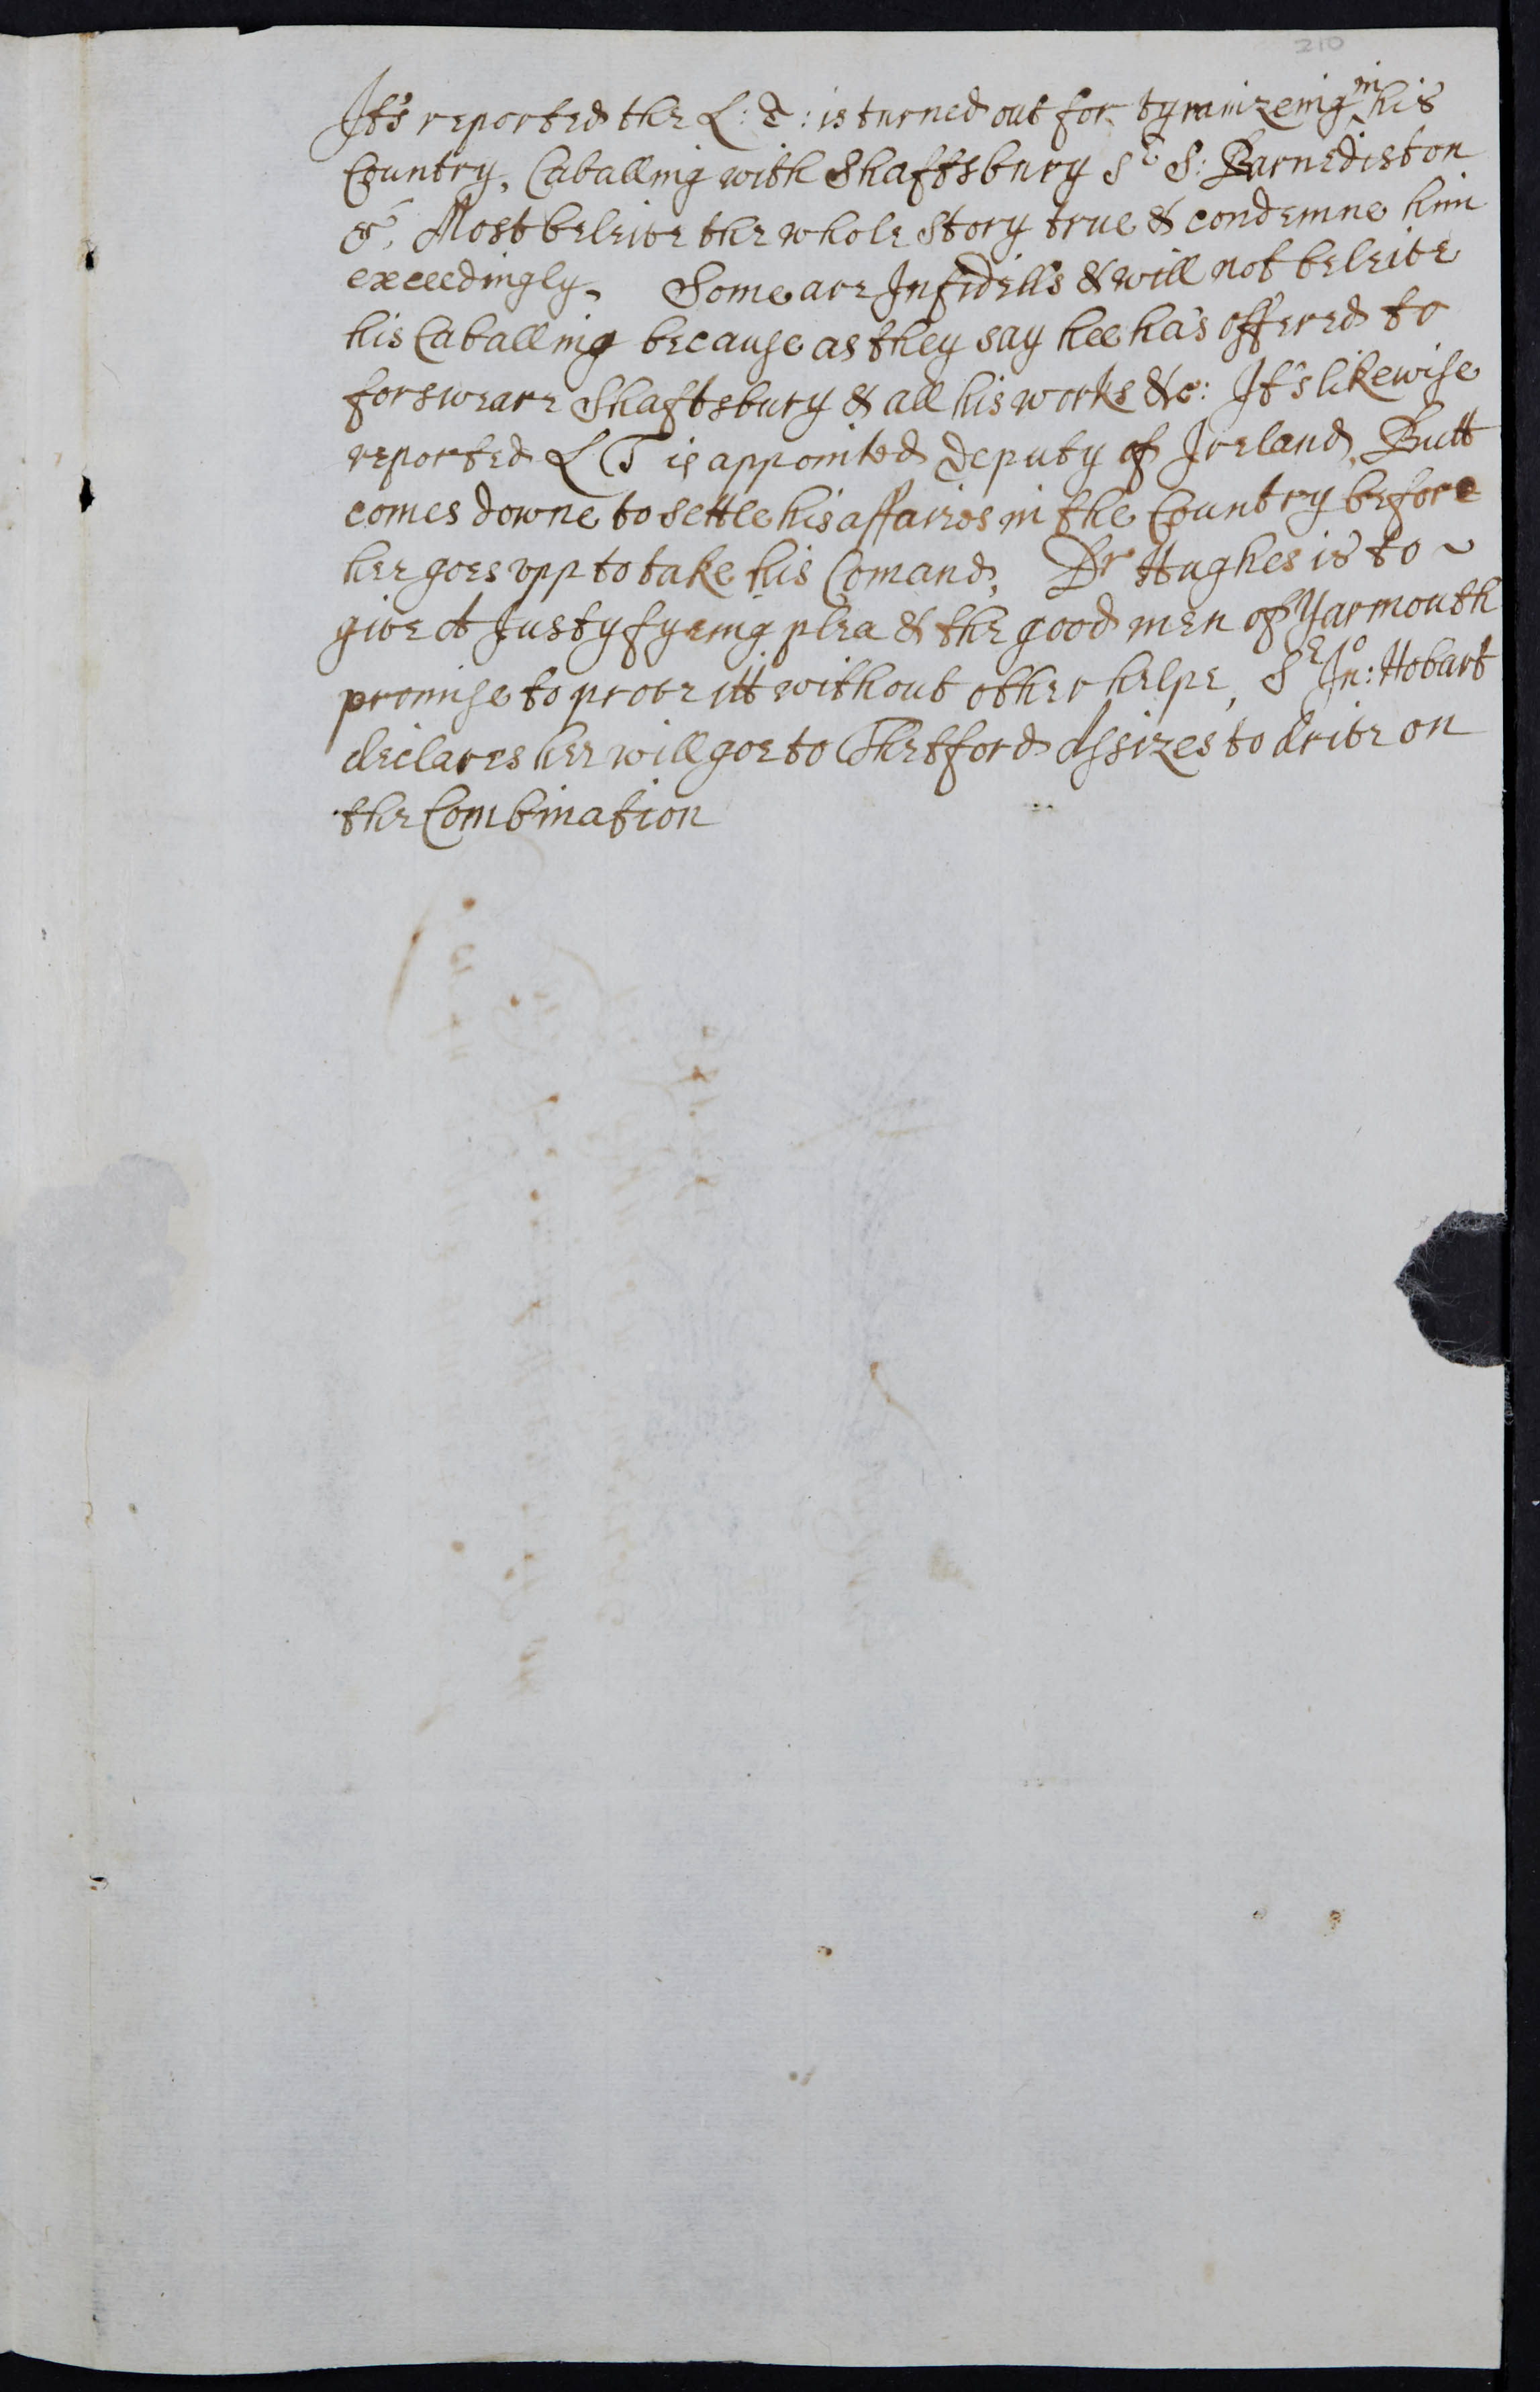 210
It's reported the L: T: is turned out for tyranizeing in his
Country, Caballing with Shaftsbury Sr S: Barnediston
&c, Most beleive the whole Story true & condemne him
exceedingly. Some are Infidells & will not beleive
his Caballing because as they say hee ha's offered to
forsweare Shaftsbury & all his works &c: It's likewise
reported L T is appointed Deputy of Ireland, Butt
comes downe to settle his affaires in the Country before
hee goes upp to take his Comand, Dr Hughes is to ~
give A Justyfyeing plea & the good men of Yarmouth
promise to prove itt without other helpe, Sr Jno: Hobart
declares hee will goe to Thetford Assizes to drive on
the Combination